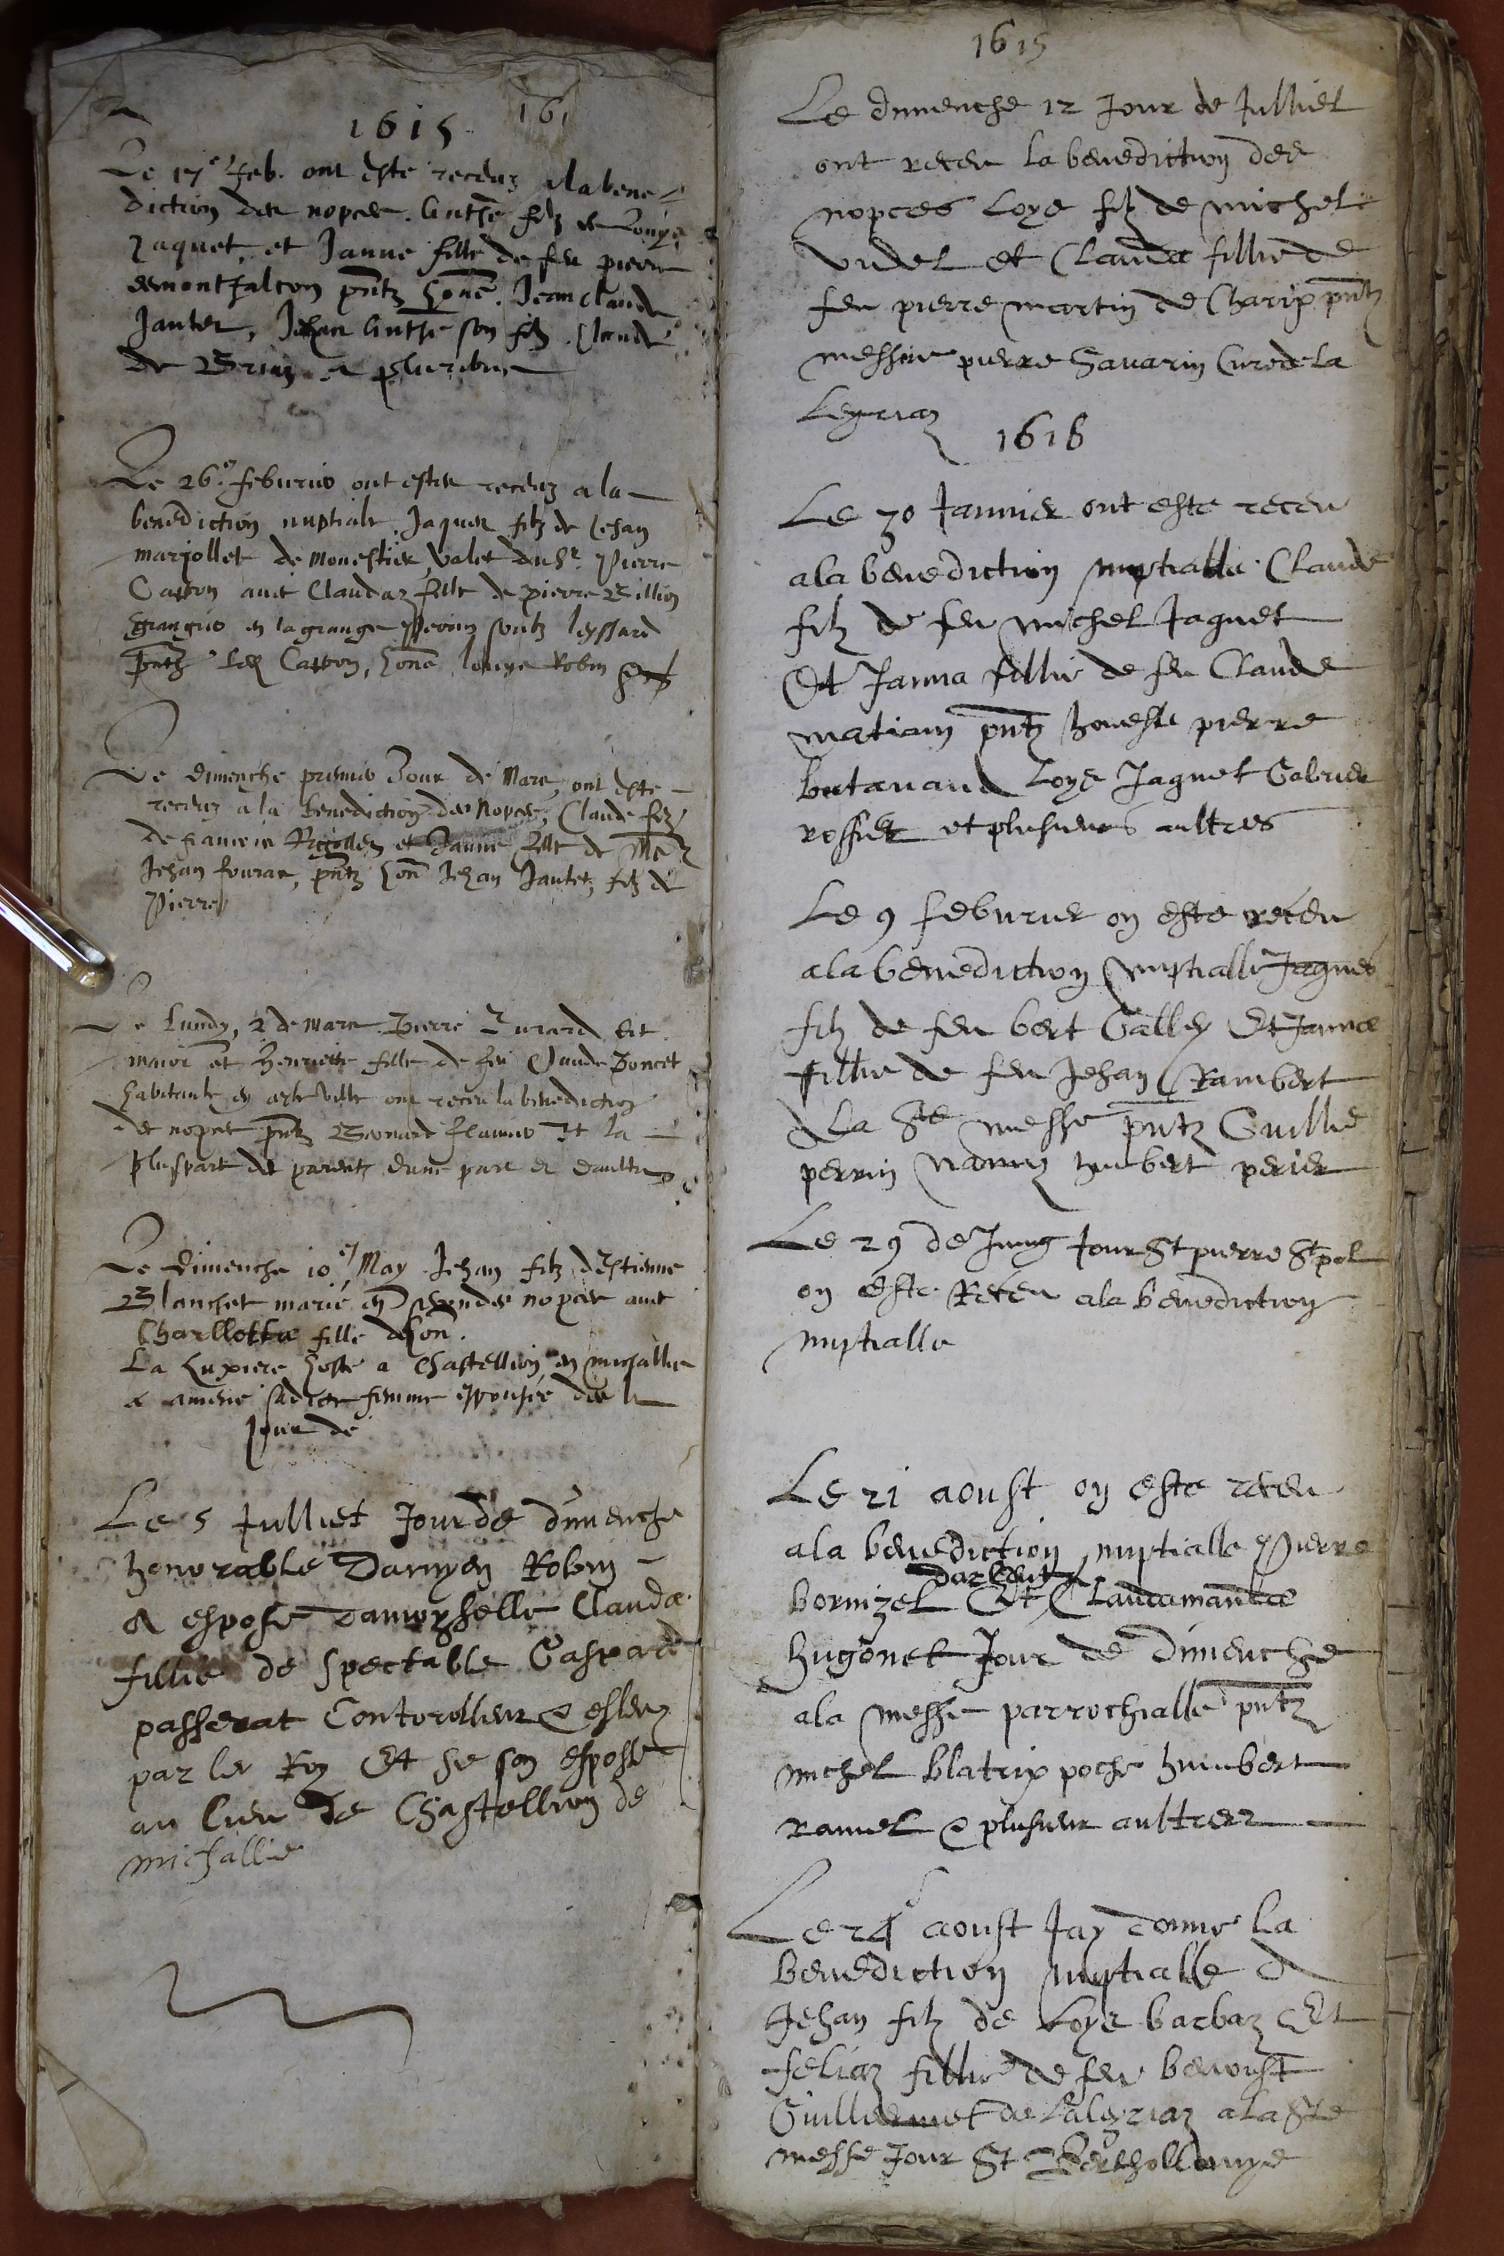 1615
Le 17e feb. ont este receuz a la bene-
diction des nopces. Anthe filz de Louys
Jaquet, et Janne fille de feu pierre
demontfalcon pntz hone. Jean claude
Jantet, Jehan Anthe son filz. Claude
de Brion & plusieurs
Le 26e feburier ont estez receuz a la
benediction nuptiale Jaques filz de Jehan
marjollet de Monestier valet du Sr. Pierre
Casson avec Claudaz fille de pierre Billion
grangier en la grange Perrin soubz leyssard
pntz led Casson, hone louys Robin
Le dimenche premier Jour de Mars, ont este
receuz a la benediction des Nopces, Claude filz
de francois et Janne fille de
Jehan fourar, pntz hon Jehan Jantet filz de
Pierre
Le Lundy, 2 de mars Pierre Jurard dit
maior et Henriette fille de feu Claude Poncet
habitante en ceste ville ont receu la benediction
de nopces pntz Bernard flamier et la
pluspart de parentz d'une part et d'aultre
Le dimenche 10e May Jehan filz d'Estienne
Blanchet marié en secondes nopces avec
Charllotte fille de hon.
La Luxiere hoste a Chastellion en michallie
& amené sadicte femme espousée des le
Jour de
Le 5 Julliet Jour de dimenche
honorable Damyen Robin
A espose damoyselle Clauda
fillie de spectable Gaspard
passerat Contorolleur & esleuz
par le Roy Et se son esposse
au lieu de Chastellion de
michallie
1615
Le dimenche 12 Jour de Julliet
ont receu la benediction des
nopces Loys filz de michel
vudel et Clauda fillie de
feu pierre martin de Charix pntz
messire pierre Savarin Cure de la
Leyriaz
1616
Le 30 Janvier ont este receu
a la benediction nuptialle Claude
filz de feu michel Jaquet
Et Janna fillie de feu Claude
matiam pntz honeste pierre
butavand Loys Jaquet Gabriel
rossiet et plusieurs aultres
Le 9 feburier on este receu
a la benediction nuptialle Jaques
filz de feu bert Galley Et Janna
fillie de feu Jehan Rambert
a La Ste messe pntz Guillie
perrin humbert perier
Le 29 de Jung Jour St pierre St pol
on este Receu a la benediction
nuptialle
Le 21 aoust on este receu
a la benediction nuptialle Pierre
darbent
bornizel Et Claudamanda
hugonet Jour de dimenche
a la messe parrochialle pntz
michel blatrix poche humbert
ramel & plusieur aultres
Le 24 aoust Jay donne la
benediction nuptialle a
Jehan filz de Loys barbaz Et
feliaz fillie de feu benoist
Guillermet de Laleyriaz a la Ste
messe Jour St Berthollomye